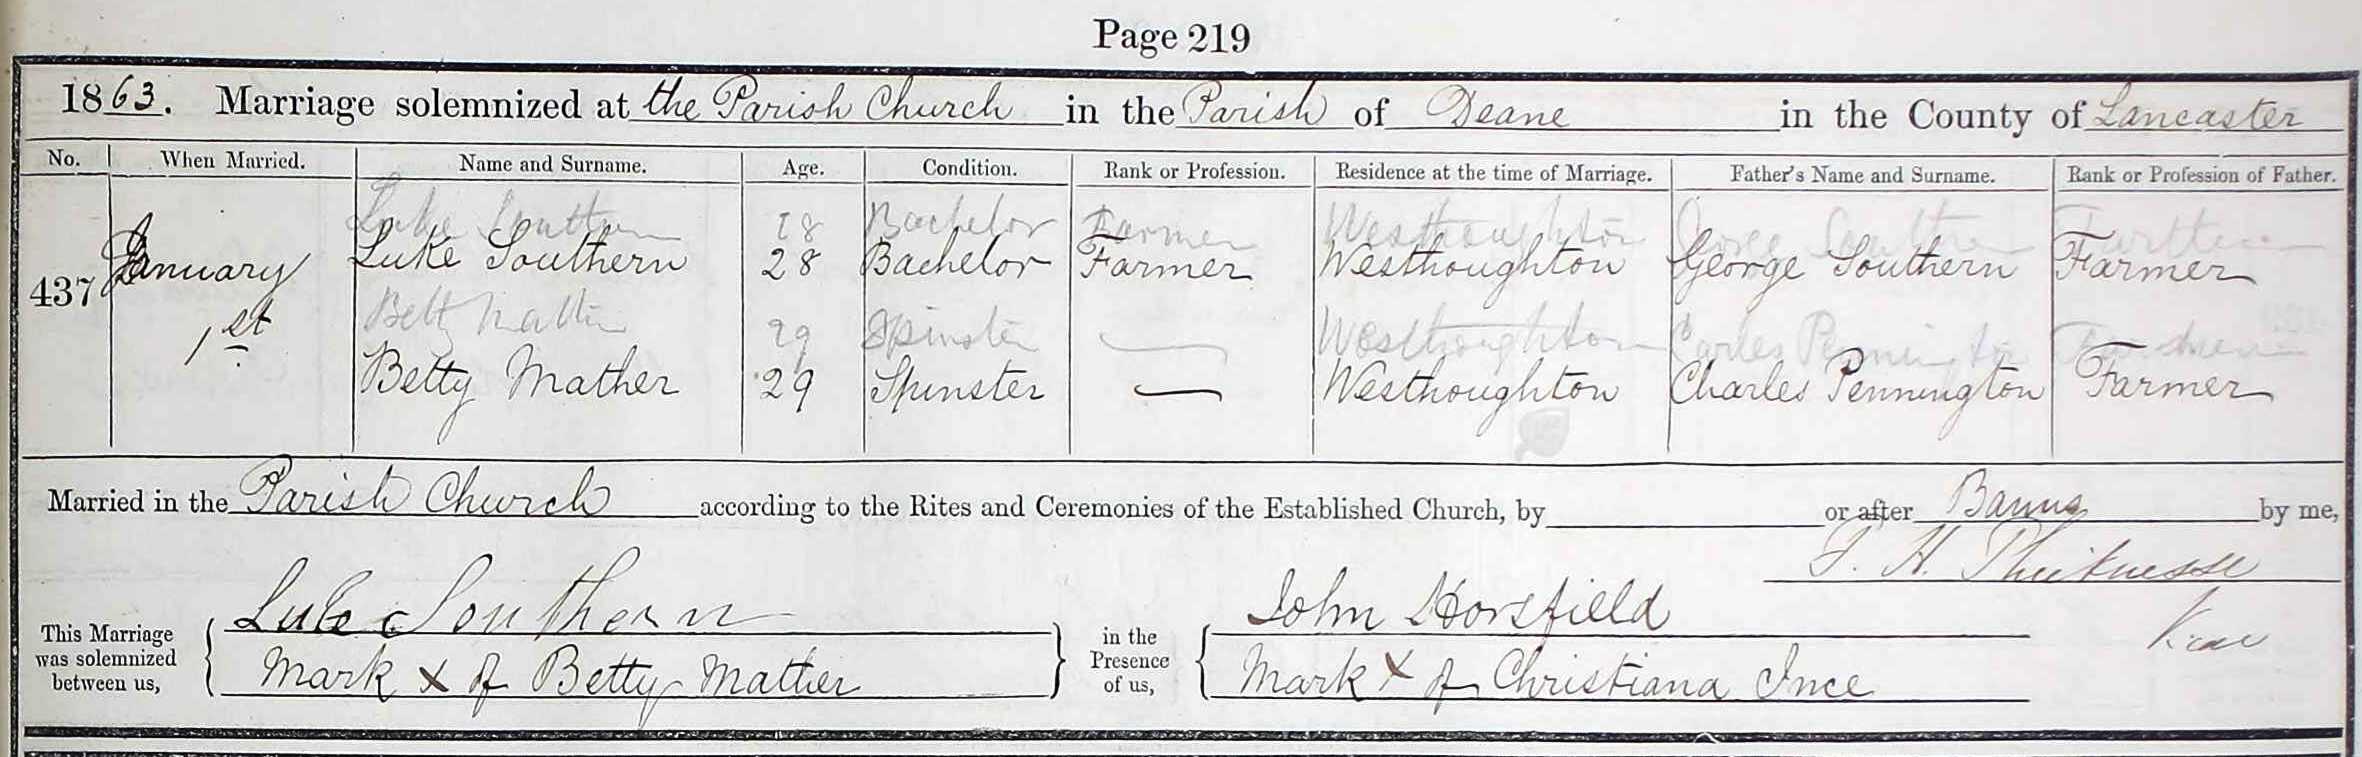 Page 219
1863. Marriage solemnized at the Parish Church in the Parish of Deane in the County of Lancaster
No. When Married. Name and Surname. Age. Condition. Rank or Profession. Residence at the time of Marriage. Father's Name and Surname. Rank or Profession of Father.
Luke 18 Bachelor Farmer Westhoughton George Southern
437 January Luke Southern 28 Bachelor Farmer Westhoughton George Southern Farmer
1st Betty 29 Spinster — Westhoughton Pennington
Betty Mather 29 Spinster — Westhoughton Charles Pennington Farmer
Married in the Parish Church according to the Rites and Ceremonies of the Established Church, by or after Banns by me,
F. H. Thicknesse
This Marriage was solemnized between us, Luke Southern in the Presence of us, John Horsfield
Mark x of Betty Mather Mark x of Christiana Ince